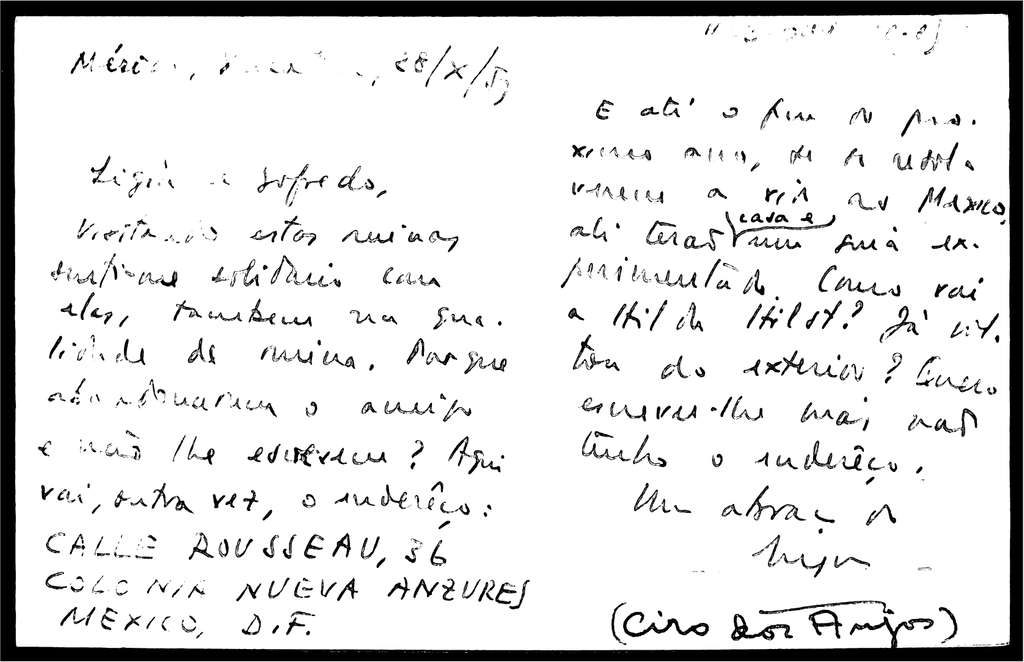 Mérida, Yucatán, 28/X/53
Ligia e Gofredo,
Visitando estas ruinas
senti-me solidário com
elas, também na qua-
lidade de ruina. Por que
abandonaram o amigo
e não lhe escrevem? Aqui
vai, outra vez, o enderêço:
CALLE ROUSSEAU, 36
COLONIA NUEVA ANZURES
MEXICO, D.F.
E até o fim do pro-
ximo ano, se se resol-
verem a vir ao Mexico,
casa e
ali terão um guia ex-
perimentado. Como vai
a Hilda Hilst? Já vol-
tou do exterior? Quero
escrever-lhe mas não
tenho o enderêço.
Um abraço do
(Ciro dos Anjos)